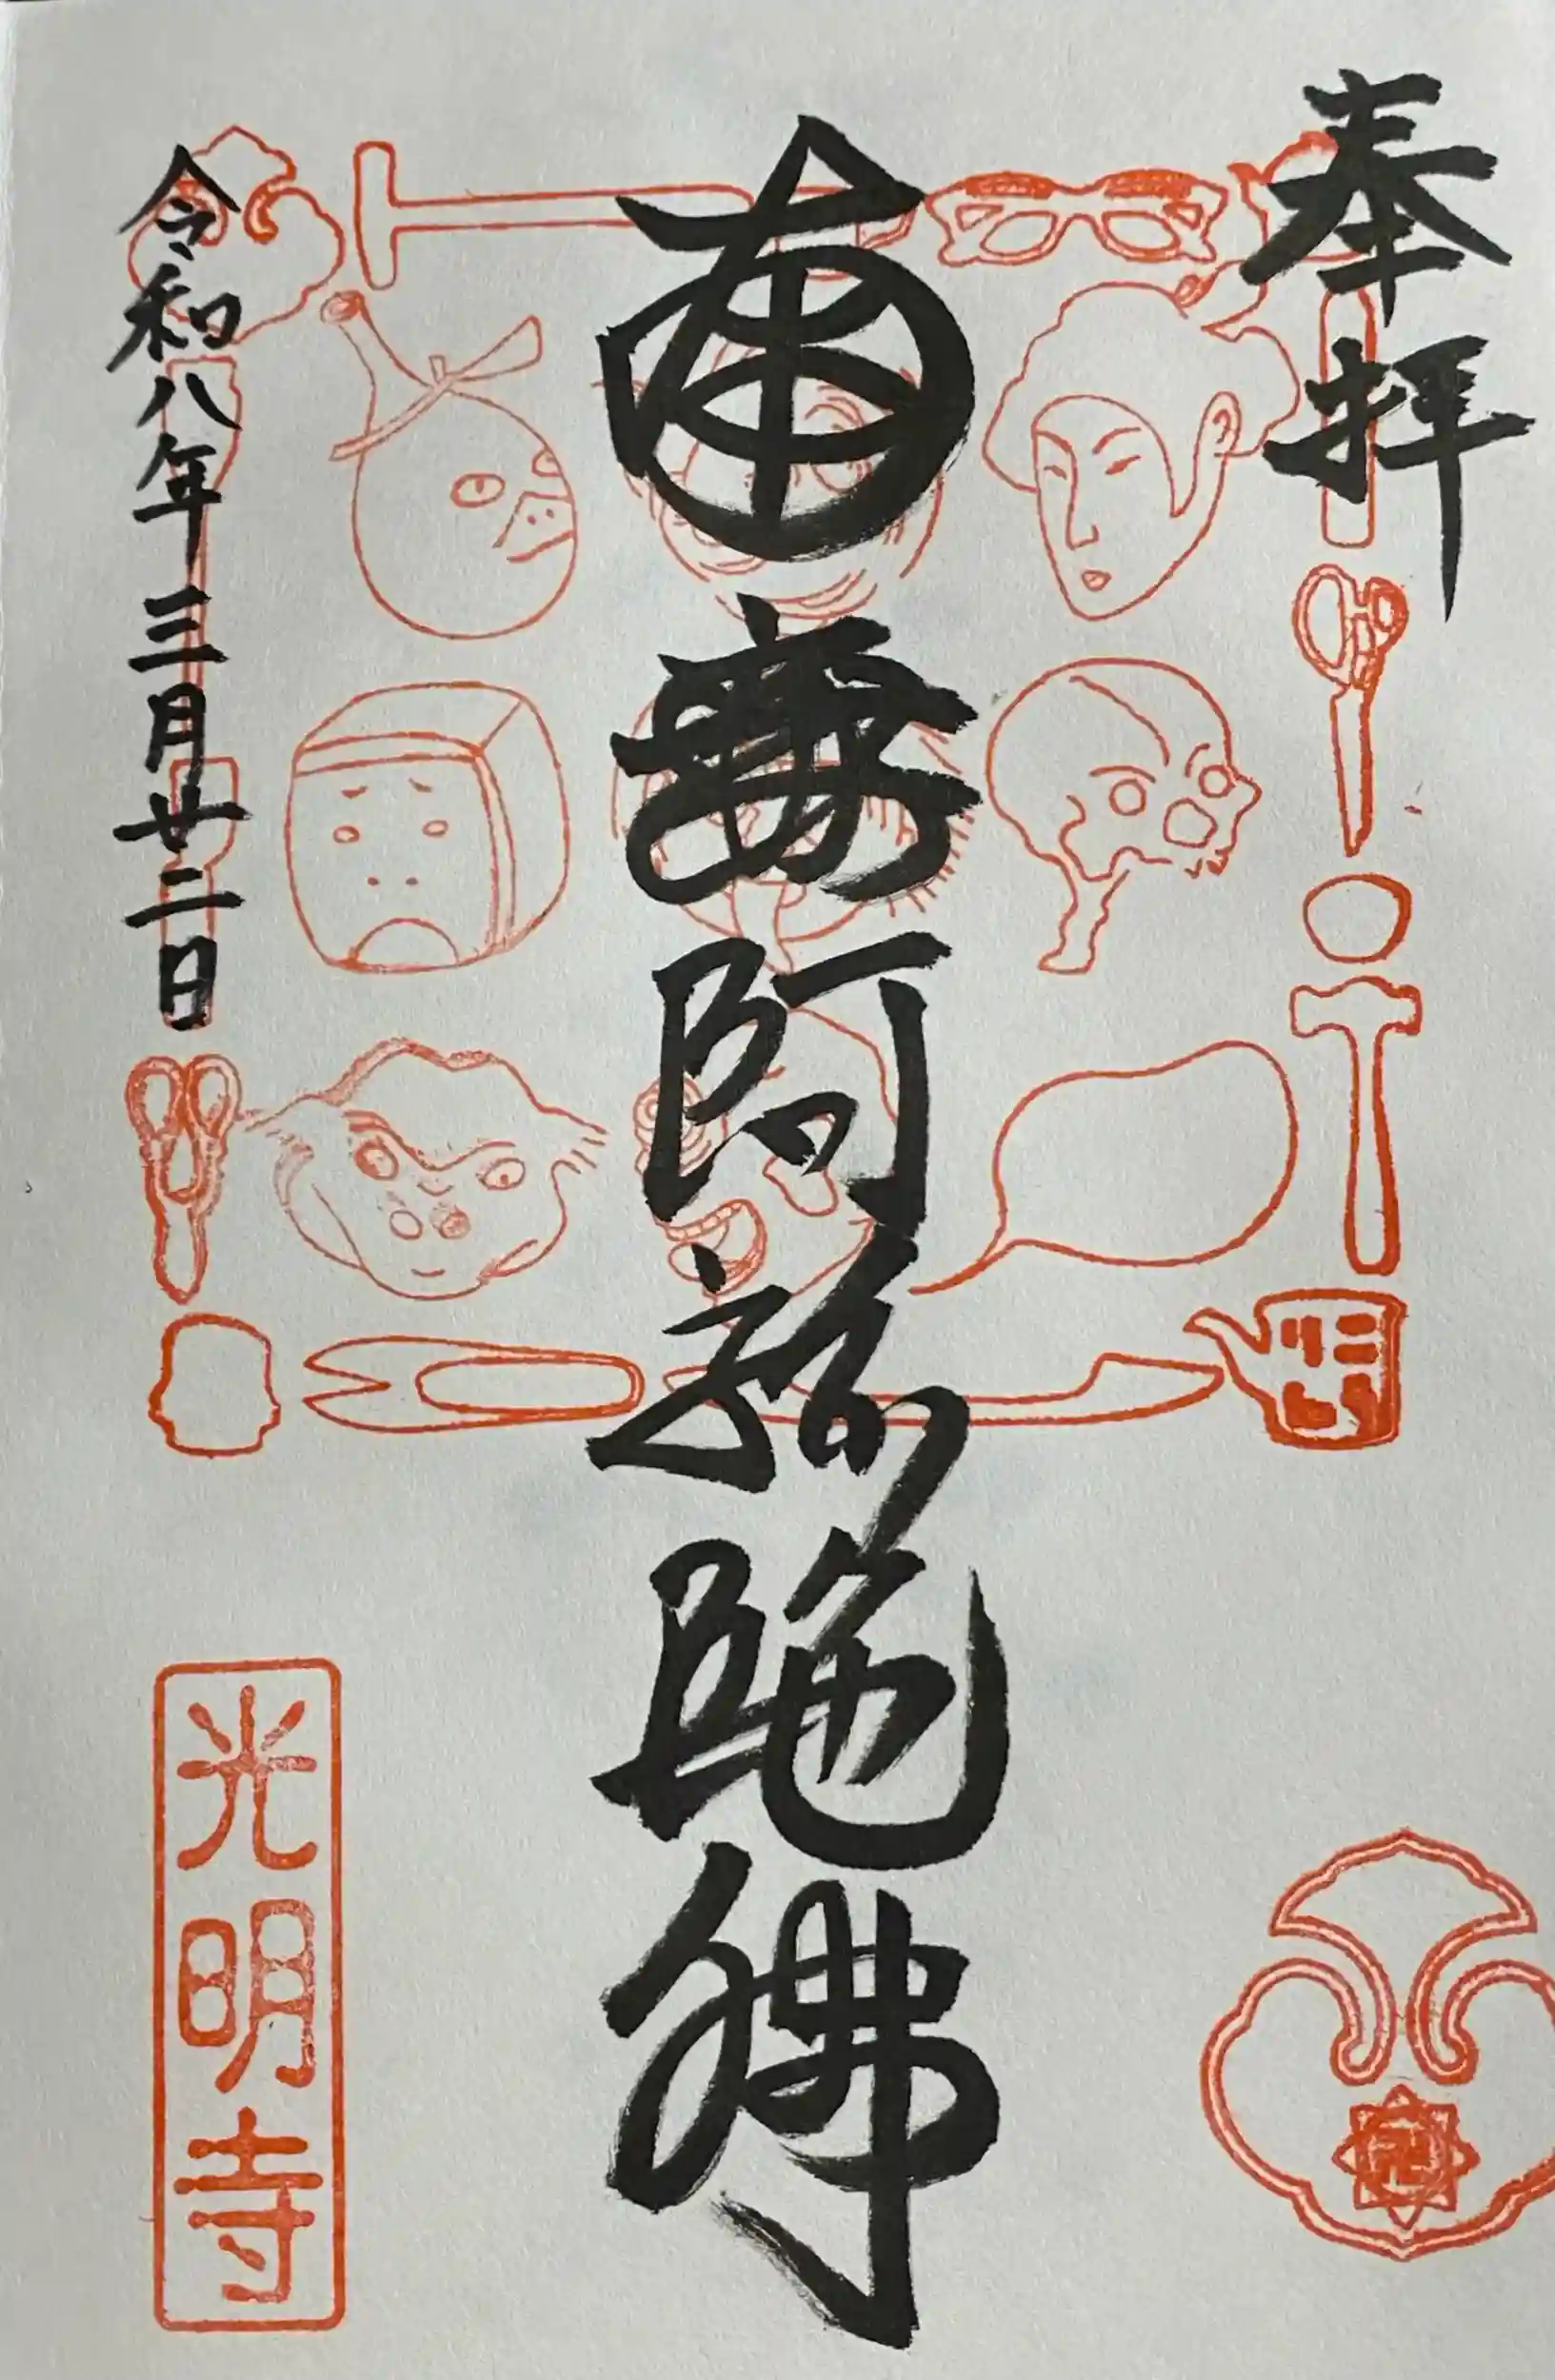 奉拝
南無阿弥陀佛
令和八年三月廿二日
光明寺
卍